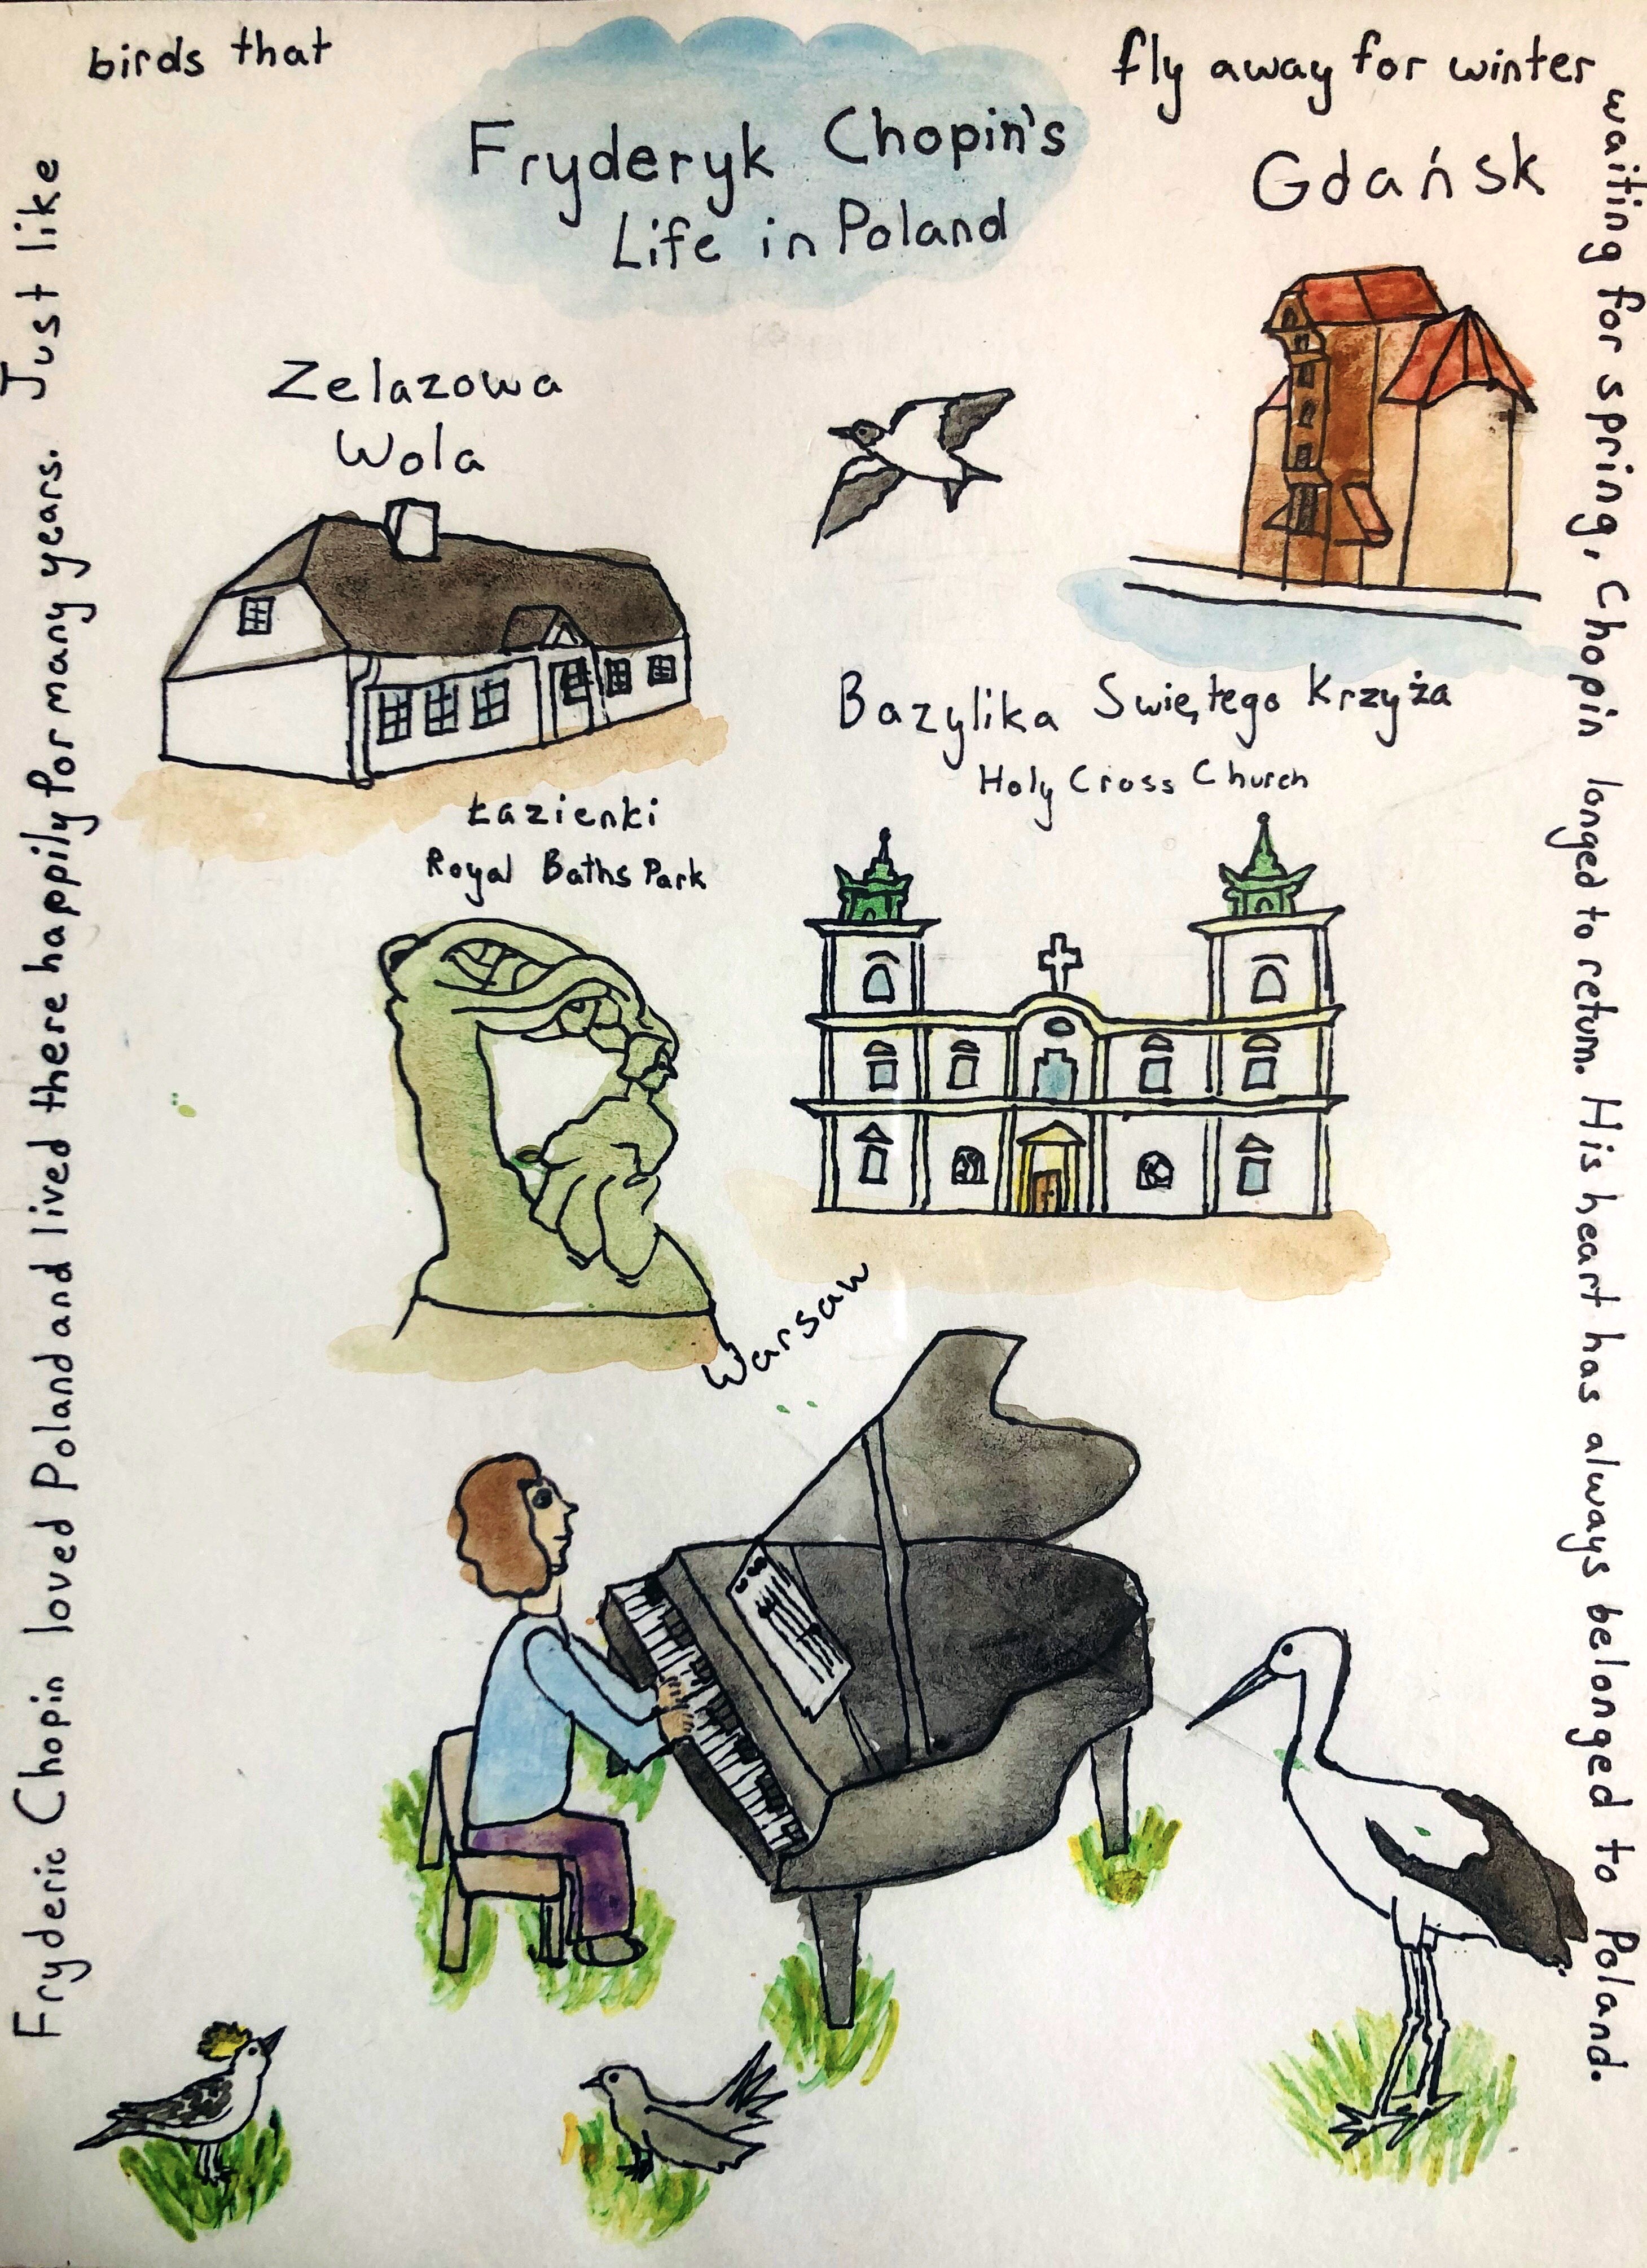 Fryderyk Chopin's
Life in Poland
Gdańsk
Zelazowa
Wola
Bazylika Swiętego Krzyża
Holy Cross Church
Łazienki
Royal Baths Park
Warsaw
Fryderic Chopin loved Poland and lived there happily for many years. Just like
birds that
fly away for winter
waiting for spring, Chopin longed to return. His heart has always belonged to Poland.